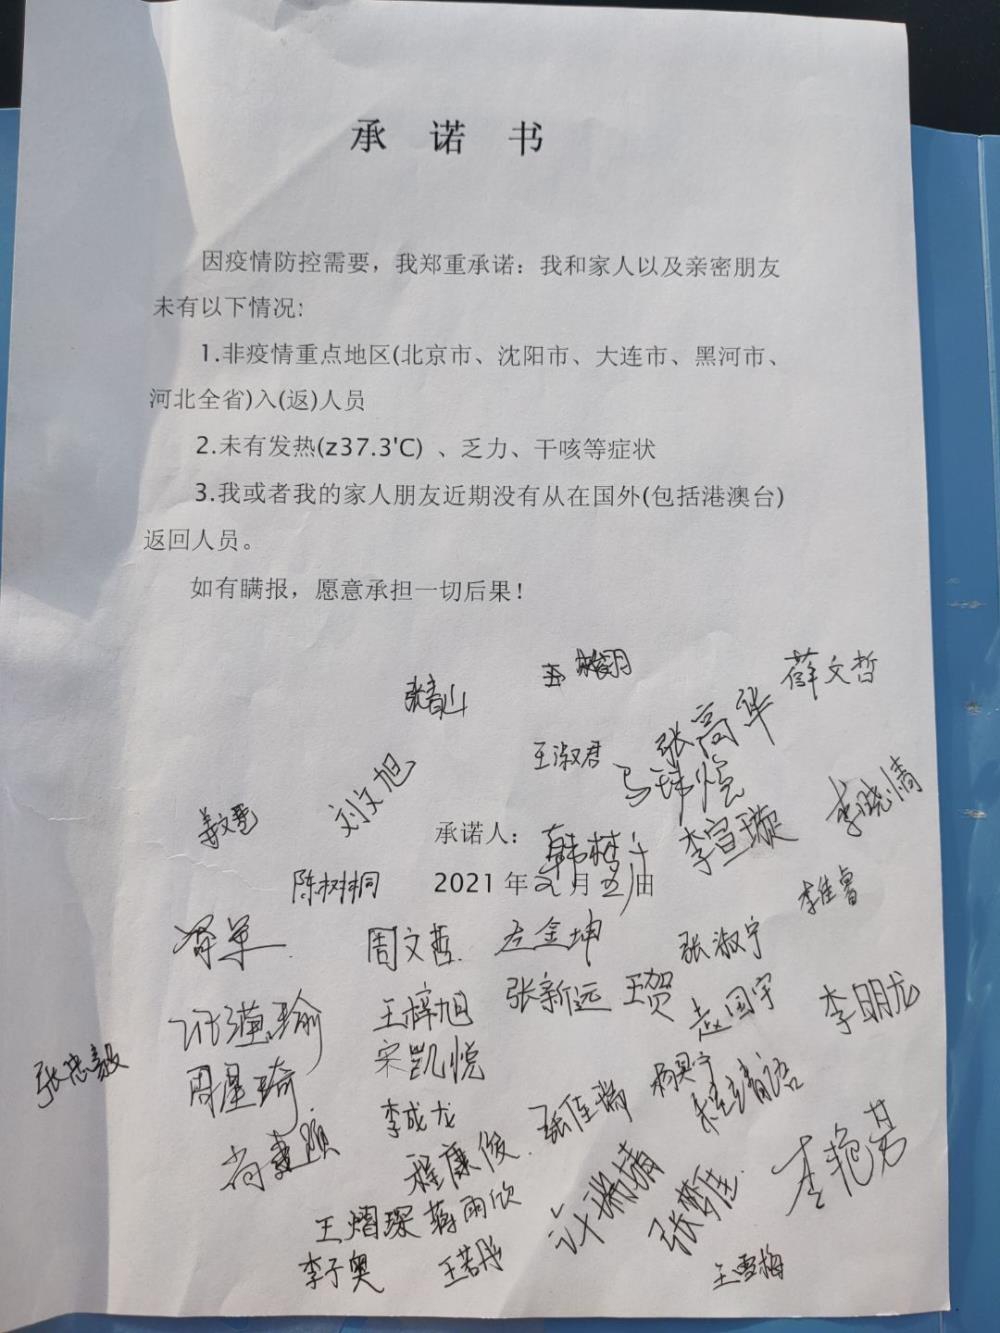 承 诺 书
因疫情防控需要，我郑重承诺：我和家人以及亲密朋友
未有以下情况：
1.非疫情重点地区(北京市、沈阳市、大连市、黑河市、
河北全省)入(返)人员
2.未有发热(z37.3'C) 、乏力、干咳等症状
3.我或者我的家人朋友近期没有从在国外(包括港澳台)
返回人员。
如有瞒报，愿意承担一切后果！
薛文哲
张春山
张高华
王淑君
刘文旭
李晓倩
李宣璇
承诺人：
陈树桐 2021年 月五日
李佳睿
周文哲 左金坤 张淑宁
张新远 王贺 赵国宇 李明龙
王梓旭
宋凯悦
张忠毅
周星琦
李成龙 张佳瑞
程康俊
李艳芳
王熠琛 蒋雨欣
李子奥 王若彤 王雪梅